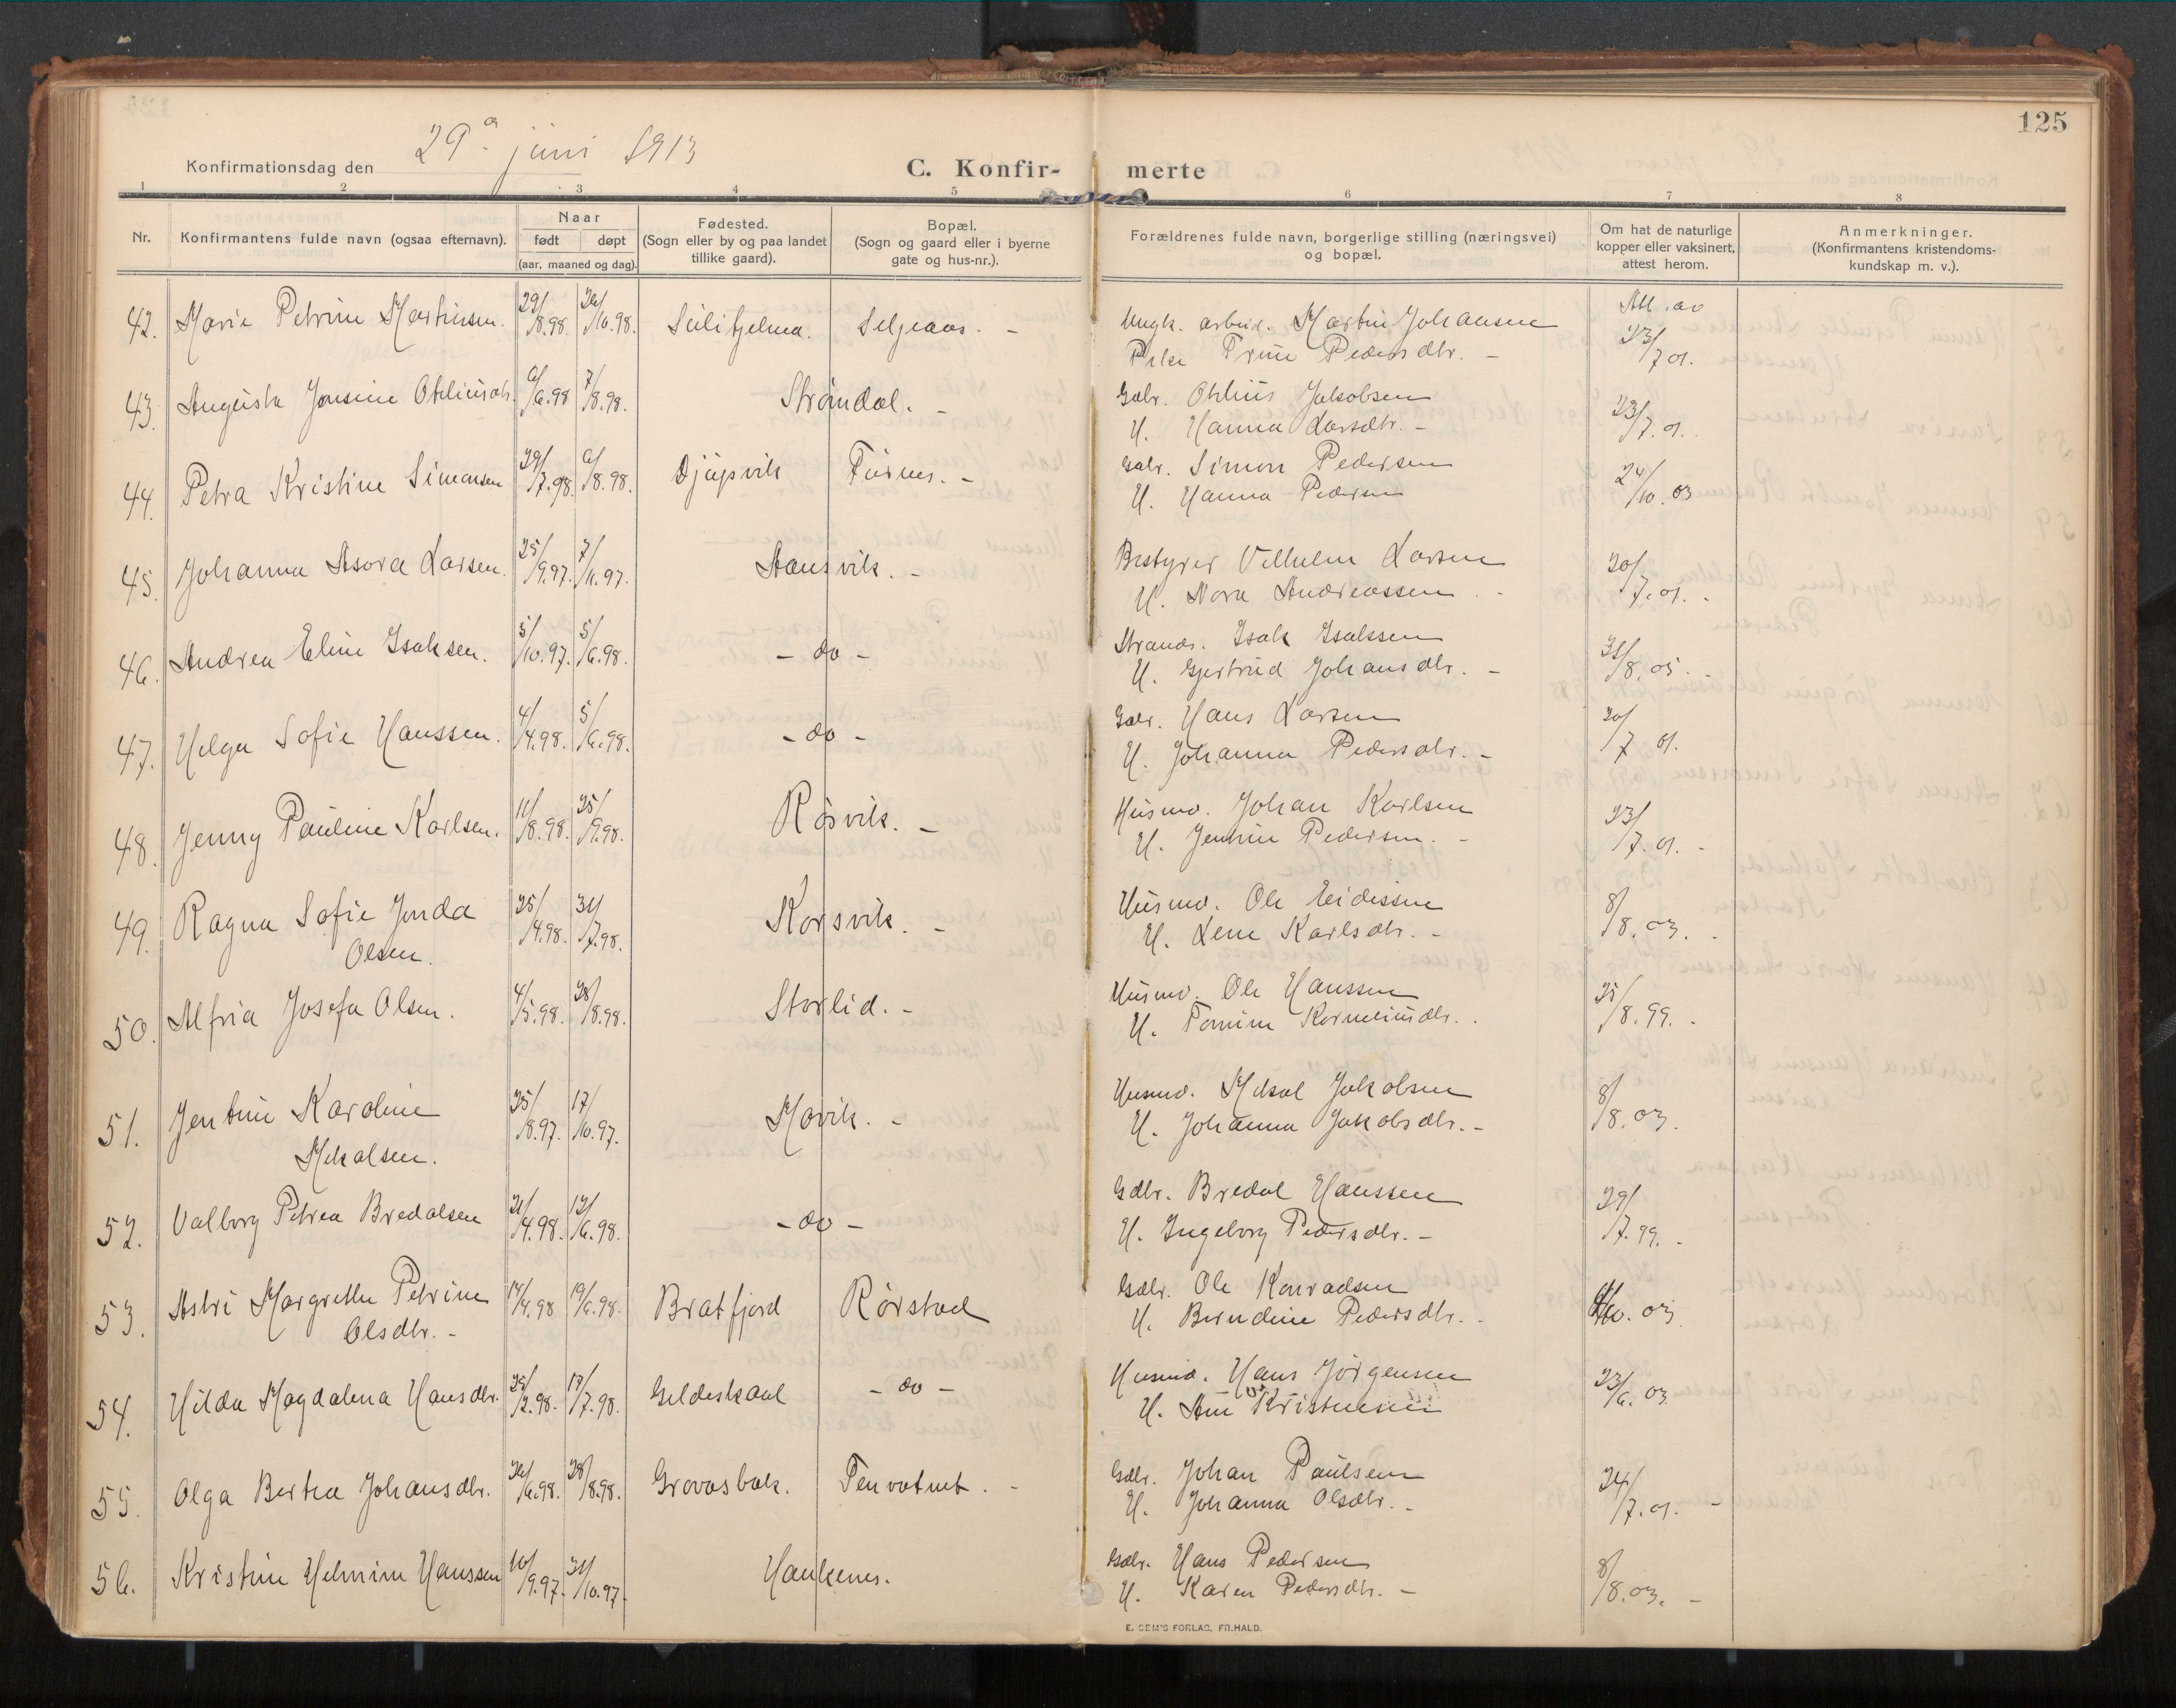 125
29de juni 1913
Konfirmationsdag den
C. Konfir- merte
1 2 3 4 5 6 7 8
Nr.
Konfirmantens fulde navn (ogsaa efternavn).
Naar
født døpt
(aar, maaned og dag).
Fødested.
(Sogn eller by og paa landet
tillike gaard).
Bopæl.
(Sogn og gaard eller i byerne
gate og hus-nr.).
Forældrenes fulde navn, borgerlige stilling (næringsvei)
og bopæl.
Om hat de naturlige
kopper eller vaksinert,
attest herom.
Anmerkninger.
(Konfirmantens kristendoms-
kundskap m. v.).
42. Marie Petrine Martinsen. 29/8.98. 26/10.98. Sulitjelma. Seljeaas. - Ungk. arbeid. Martin Johansen Att. av
Pike Trine Pedersdtr. - 23/7 01.
43. Augusta Jonsine Otiliusdtr. 6/6.98 7/8.98. Strømdal. - Gdbr. Othlius Jakobsen
H. Hanna Larsdtr. - 23/7.01.
44. Petra Kristine Simonsen 29/7.98. 6/8.98. Djupvik Furnes. - Gdbr. Simon Pedersen
H. Hanna Pedersen 24/10.03
45. Johanna Asora Larsen. 25/9.97. 7/11.97. Hansvik. - Bestyrer Vilhelm Larsen
H. Nora Andreassen. - 20/7.01. -
46. Andrea Eline Isaksen. 5/10.97. 5/6.98. - do - Strands. Isak Isakssen
H. Gjertrud Johansdtr. - 31/8.05. -
47. Helga Sofie Hanssen. 4/4.98. 5/6.98. - do - Gdbr. Hans Larsen
H. Johanna Pedersdtr. - 20/7 01.
48. Jenny Pauline Karlsen. 11/8.98. 25/9.98. Røsvik. - Husmd. Johan Karlsen
H. Jensine Pedersen. - 23/7.01. -
49. Ragna Sofie Jonda 25/4.98. 31/7.98. Korsvik. - Husmd. Ole Eidissen
Olsen. H. Lene Karlsdtr. - 8/8.03. -
50. Alfria Josefa Olsen. 4/5.98. 28/8.98. Storlid. - Husmd. Ole Hanssen
H. Tomine Korneliusdtr. 25/8.99. -
51. Jentine Karoline 25/8.97. 17/10.97. Movik. - Husmd. Mikal Jakobsen
Mikalsen. H. Johanna Jakobsdtr. - 8/8.03.
52. Valborg Petrea Bredalsen 21/4.98. 12/6.98. - do - Gdbr. Bredal Hanssen
H. Ingeborg Pedersdtr. - 29/7.99. -
53. Astri Margrethe Petrine 14/4.98 19/6.98. Bratfjord Rørstad Gdbr. Ole Konradsen
Olsdtr. - H. Berndine Pedersdtr. - 03
54. Hilda Magdalena Hansdtr. 25/2.98. 17/7.98. Gildeskaal - do - Husmd. Hans Jørgensen
H. Ane Kristensen 23/6.03
55. Olga Bertea Johansdtr. 26/6.98. 28/8.98. Grovasbak. Tenvatnet. - Gdbr. Johan Paulsen
H. Johanna Olsdtr. - 24/7.01. -
56. Kristine Helmine Hanssen 10/9.97. 31/10.97. Haukenes. Gdbr. Hans Pedersen
H. Karen Pedersdtr. - 8/8.03. -
E. SEM'S FORLAG, FR.HALD.